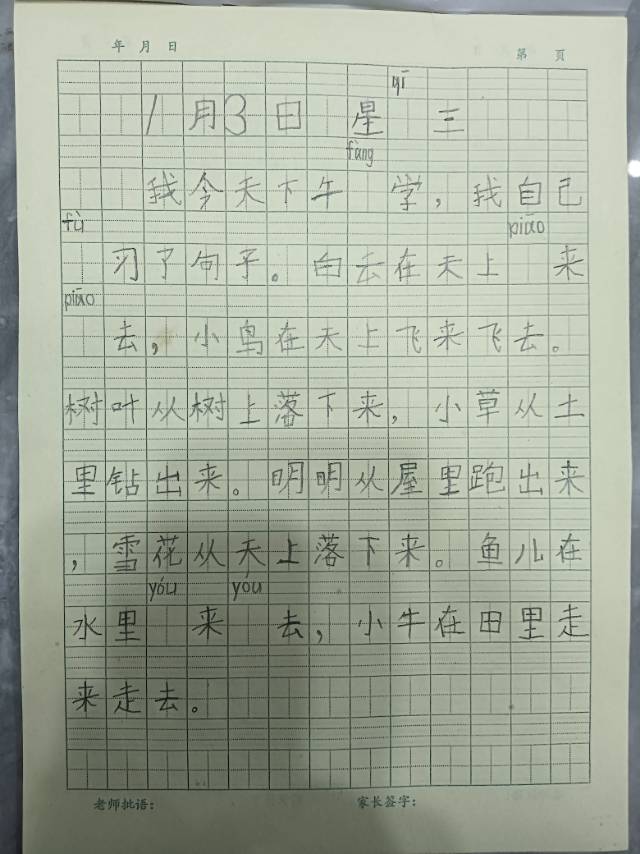 年 月 日 第 页
qī
1月3日 星 三
fàng
我今天下午 学，我自己
fù piāo
习了句子。白云在天上 来
piāo
去，小鸟在天上飞来飞去。
树叶从树上落下来，小草从土
里钻出来。明明从屋里跑出来
，雪花从天上落下来。鱼儿在
yóu yóu
水里 来 去，小牛在田里走
来走去。
老师批语： 家长签字：